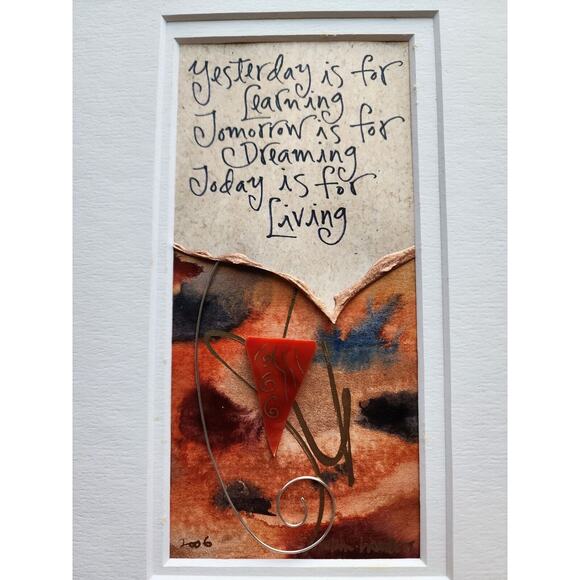 Yesterday is for
Learning
Tomorrow is for
Dreaming
Today is for
Living
2006